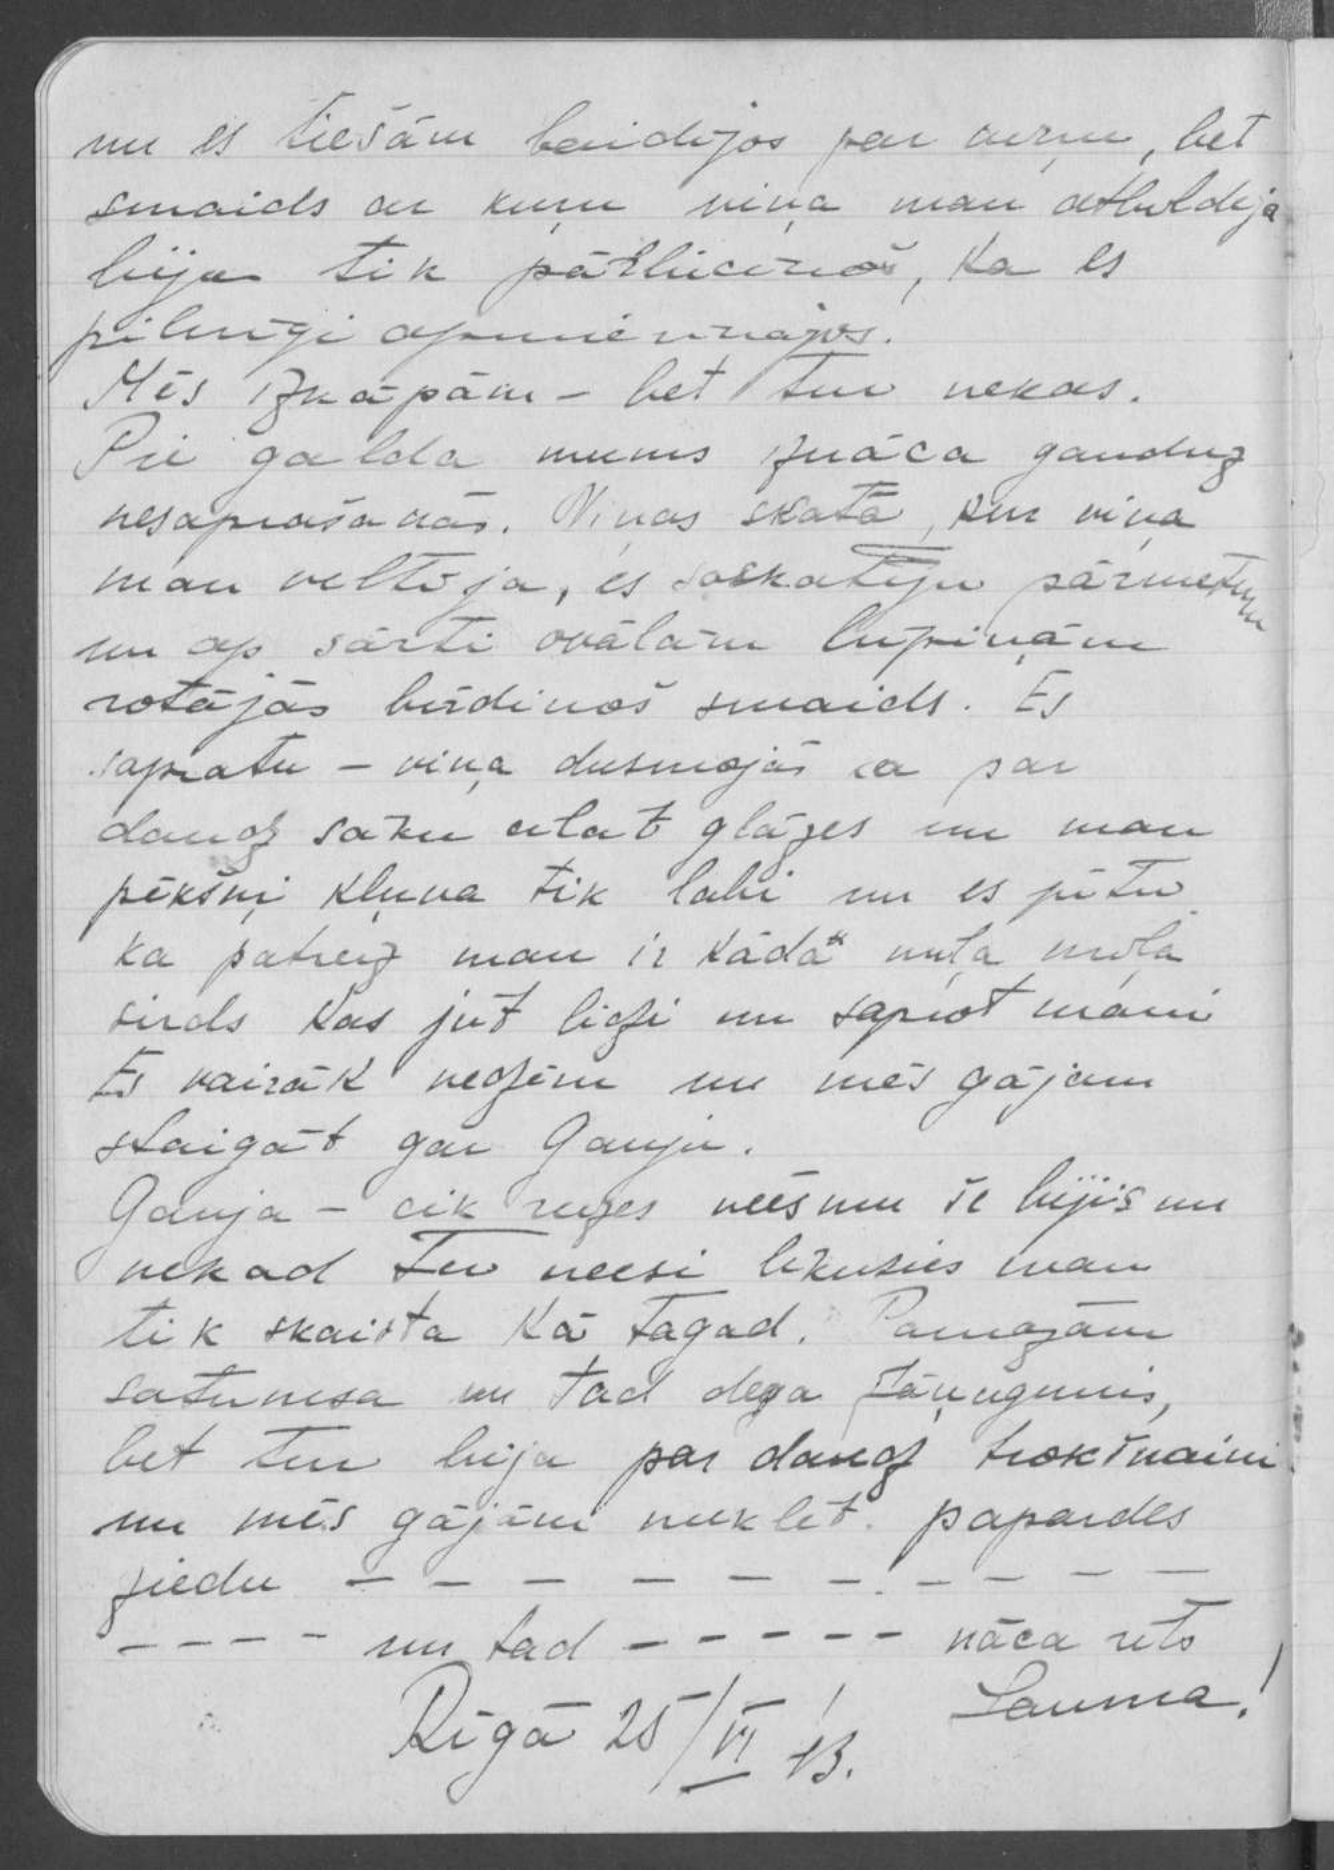 un es tiešām baidijos par viņu, bet
smaids ar kuŗu viņa man atbildēja
bija tik pārliecinošs, ka es
pilnīgi apmierinājos.
Mēs izkāpām – bet tur nekas.
Pie galda mums iznāca gandrīz
nesaprašanās. Viņas skatā, kur viņa
man veltīja, es saskatīju pārmetumu
un ap sārti ovālām lūpiņām
rotājās brīdinošs smaids. Es
sapratu – viņa dusmojās ka par
daudz sāku cilāt glāzes un man
pēkšņi kļuva tik labi un es jūtu
ka patreiz man ir kāda mīļa mīļa
sirds kas jūt līdzi un saprot mani
Es vairāk nedzēru un mēs gājam
staigāt gar Gauju.
Gauja – cik reizes neesmu še bijis un
nekad Tu neesi likusies man
tik skaista kā tagad. Pamazām
satumsa un tad dega Jāņugunis,
bet tur bija par daudz trokšņaini
un mēs gājām meklēt papardes
ziedu – – – – – – – – – – –
– – – – un tad – – – – – – nāca rīts
Lauma!
Rīgā 25/VI 43.